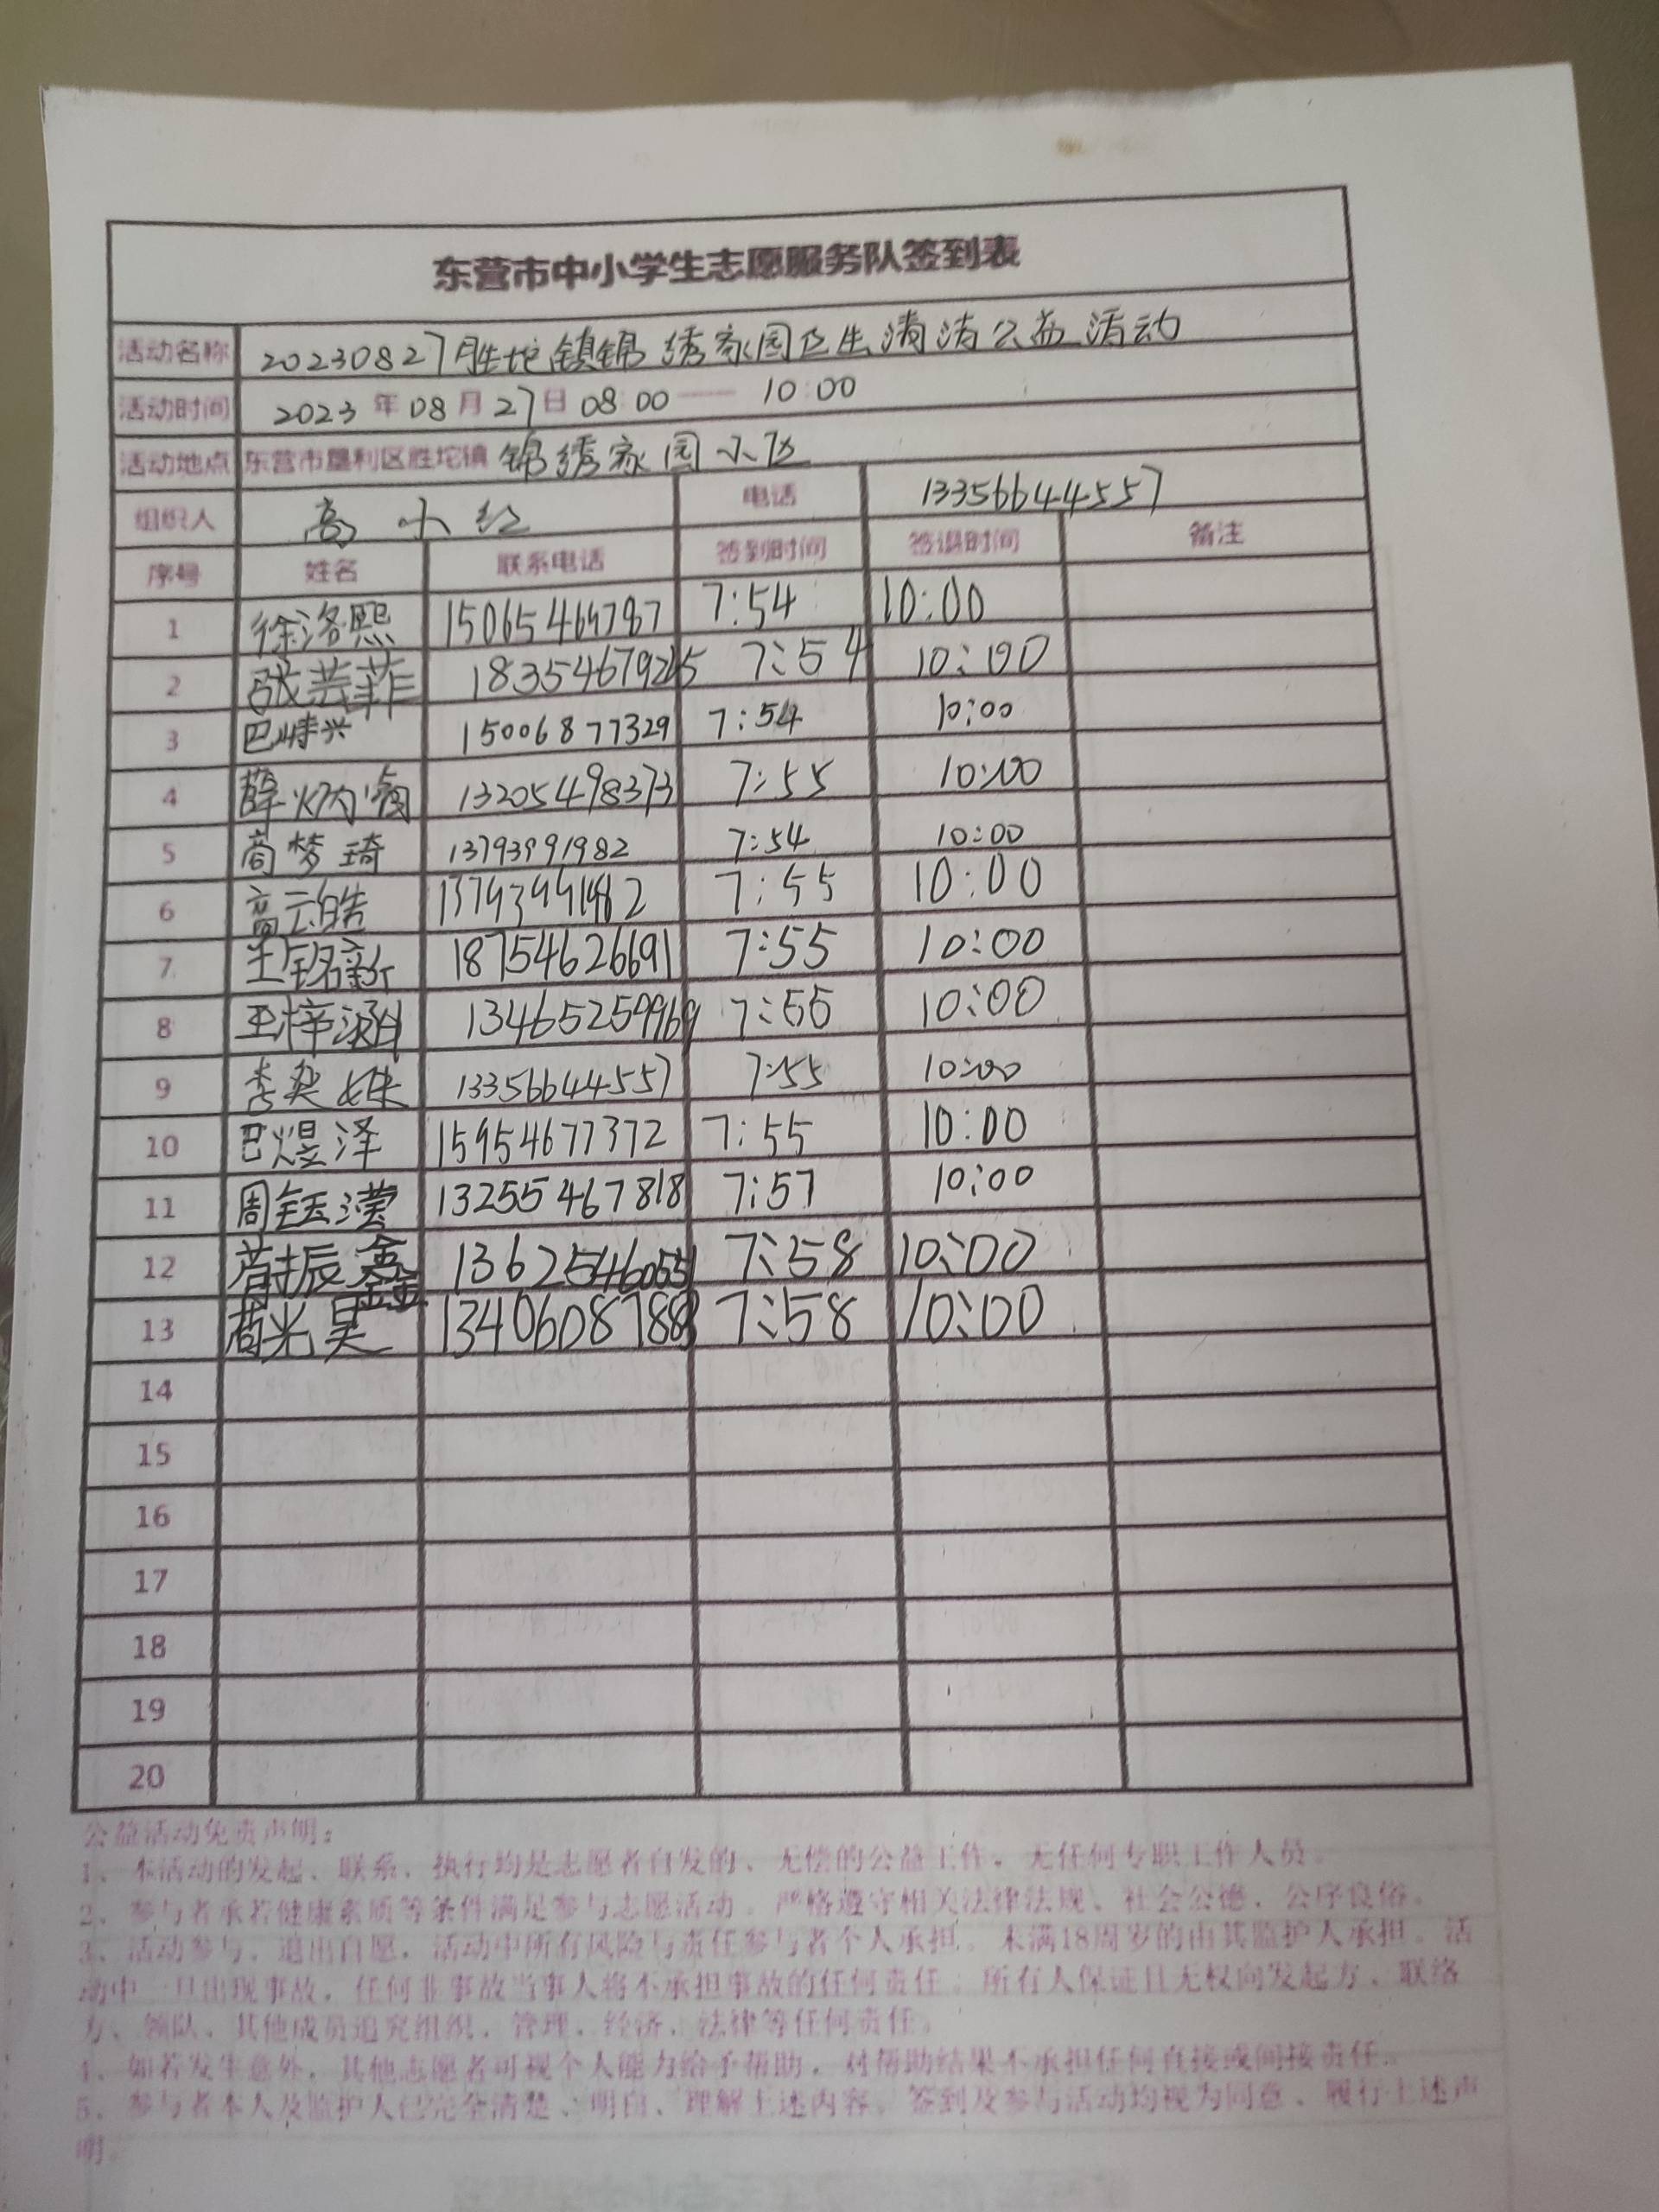 东营市中小学生志愿服务队签到表
活动名称 20230827胜坨镇锦绣家园卫生清洁公益活动
活动时间 2023年08月27日 08:00 —— 10:00
活动地点 东营市垦利区胜坨镇 锦绣家园小区
组织人 高小红 电话 13356644557
序号 姓名 联系电话 签到时间 签退时间 备注
1 徐洛熙 7:54 10:00
2 张芸菲 7:54 10:00
3 15006877329 7:54 10:00
4 薛炳 13205498373 7:55 10:00
5 商梦琦 13793991982 7:54 10:00
6 高云皓 7:55 10:00
7 王铭新 18754626691 7:55 10:00
8 王梓涵 13465259969 7:55 10:00
9 李奕姝 13356644557 7:55 10:00
10 巴煜泽 15954677372 7:55 10:00
11 周钰滢 13255467818 7:57 10:00
12 振鑫 7:58 10:00
13 7:58 10:00
14
15
16
17
18
19
20
公益活动免责声明：
1、本活动的发起、联系、执行均是志愿者自发的、无偿的公益工作，无任何专职工作人员。
2、参与者承若健康素质等条件满足参与志愿活动。严格遵守相关法律法规、社会公德，公序良俗。
3、活动参与、退出自愿，活动中所有风险与责任参与者个人承担。未满18周岁的由其监护人承担。活
动中一旦出现事故，任何非事故当事人将不承担事故的任何责任。所有人保证且无权向发起方、联络
方、领队、其他成员追究组织、管理、经济、法律等任何责任。
4、如若发生意外，其他志愿者可视个人能力给予帮助，对帮助结果不承担任何直接或间接责任。
5、参与者本人及监护人已完全清楚、明白、理解上述内容，签到及参与活动均视为同意、履行上述声
明。